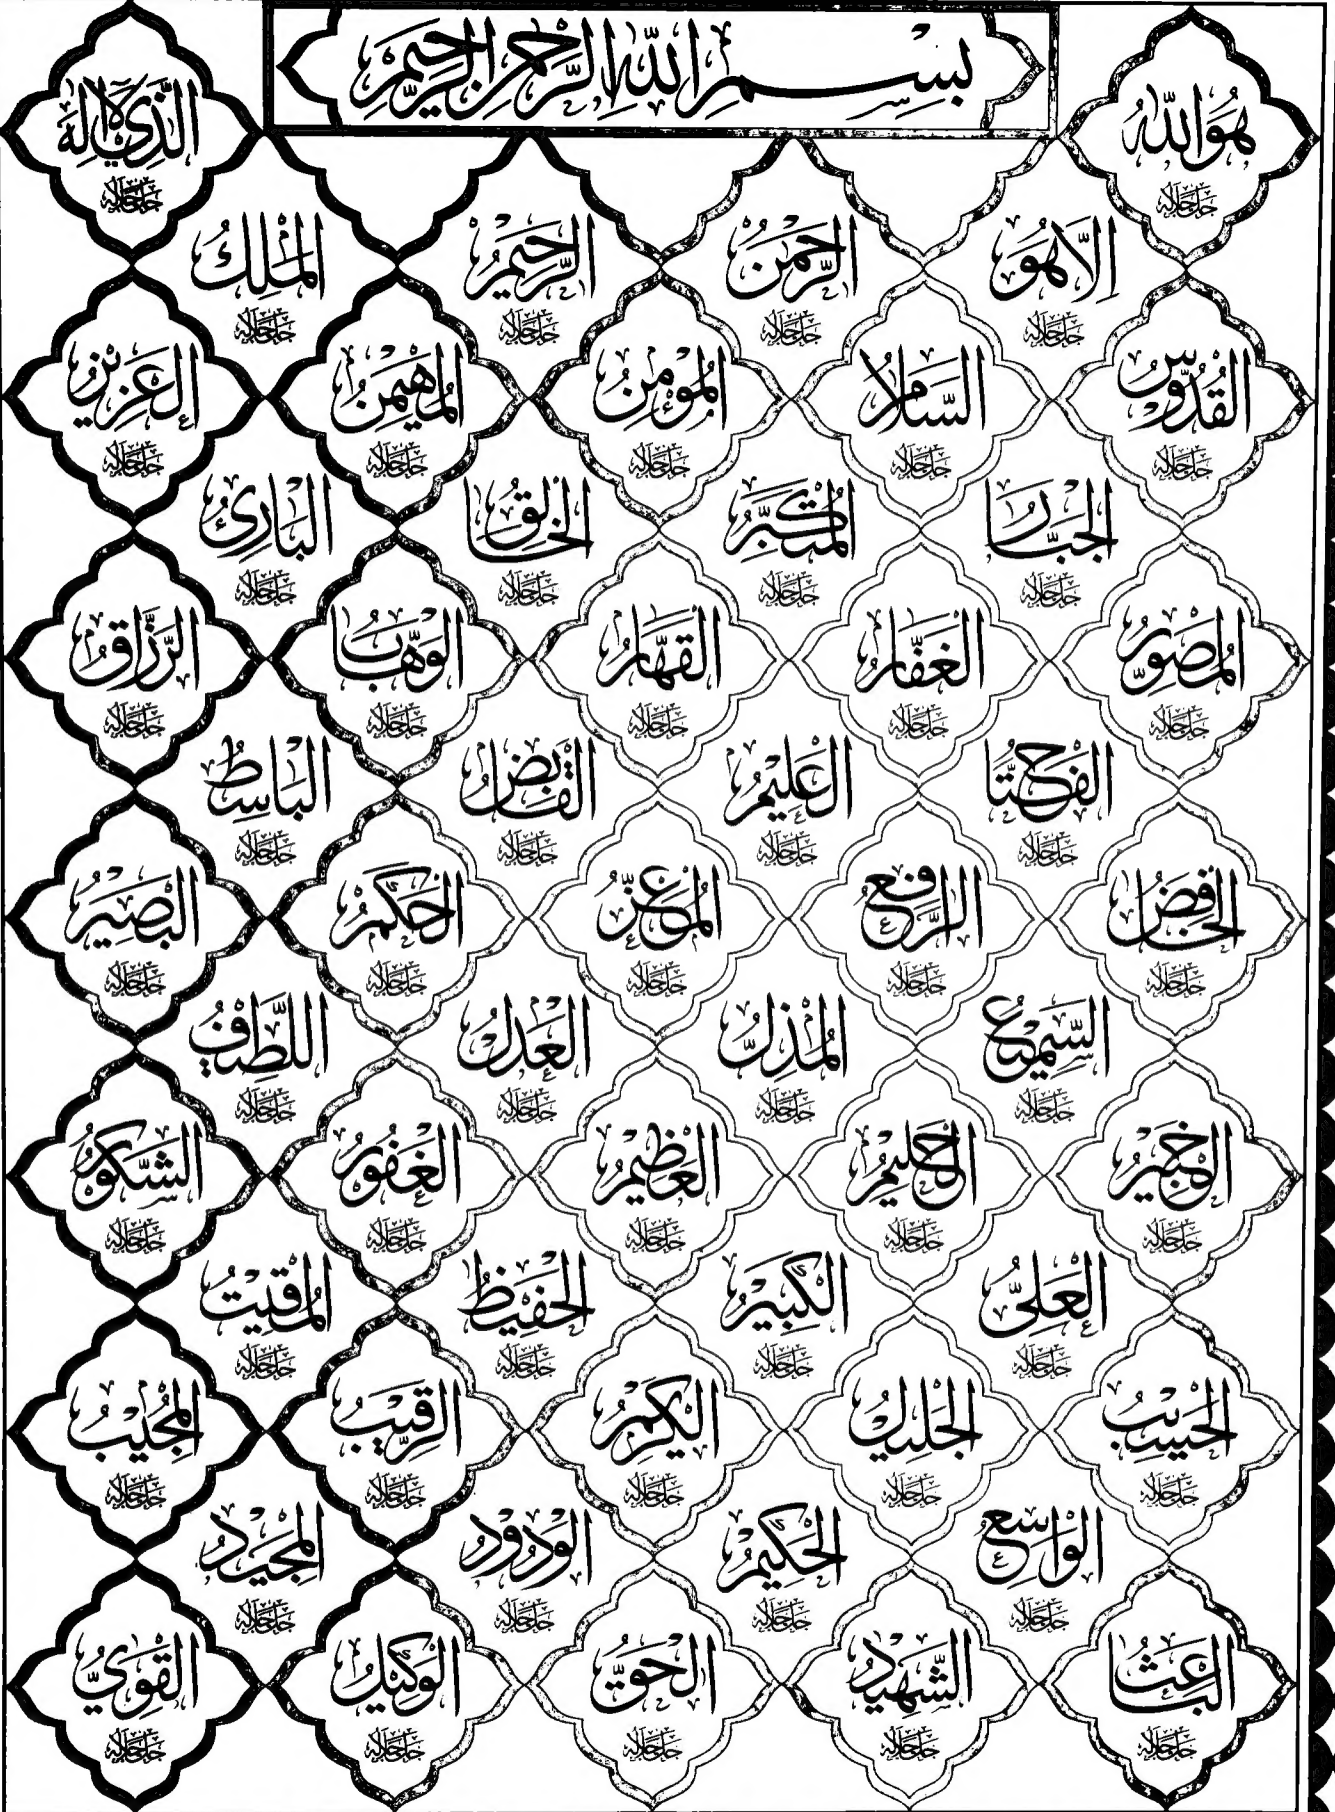 بِسْمِ اللّٰهِ الرَّحْمٰنِ الرَّحِيْمِ
هُوَ اللّٰهُ جل جلاله الَّذِيْ لَا إِلٰهَ جل جلاله
اِلَّا هُوَ جل جلاله الرَّحْمٰنُ جل جلاله الرَّحِيْمُ جل جلاله الْمَلِكُ جل جلاله
الْقُدُّوْسُ جل جلاله السَّلَامُ جل جلاله الْمُؤْمِنُ جل جلاله الْمُهَيْمِنُ جل جلاله الْعَزِيْزُ جل جلاله
الْجَبَّارُ جل جلاله الْمُتَكَبِّرُ جل جلاله الْخَالِقُ جل جلاله الْبَارِئُ جل جلاله
الْمُصَوِّرُ جل جلاله الْغَفَّارُ جل جلاله الْقَهَّارُ جل جلاله الْوَهَّابُ جل جلاله الرَّزَّاقُ جل جلاله
الْفَتَّاحُ جل جلاله الْعَلِيْمُ جل جلاله الْقَابِضُ جل جلاله الْبَاسِطُ جل جلاله
الْخَافِضُ جل جلاله الرَّافِعُ جل جلاله الْمُعِزُّ جل جلاله الْحَكَمُ جل جلاله الْبَصِيْرُ جل جلاله
السَّمِيْعُ جل جلاله الْمُذِلُّ جل جلاله الْعَدْلُ جل جلاله اللَّطِيْفُ جل جلاله
الْخَبِيْرُ جل جلاله الْحَلِيْمُ جل جلاله الْعَظِيْمُ جل جلاله الْغَفُوْرُ جل جلاله الشَّكُوْرُ جل جلاله
الْعَلِيُّ جل جلاله الْكَبِيْرُ جل جلاله الْحَفِيْظُ جل جلاله الْمُقِيْتُ جل جلاله
الْحَسِيْبُ جل جلاله الْجَلِيْلُ جل جلاله الْكَرِيْمُ جل جلاله الرَّقِيْبُ جل جلاله الْمُجِيْبُ جل جلاله
الْوَاسِعُ جل جلاله الْحَكِيْمُ جل جلاله الْوَدُوْدُ جل جلاله الْمَجِيْدُ جل جلاله
الْبَاعِثُ جل جلاله الشَّهِيْدُ جل جلاله الْحَقُّ جل جلاله الْوَكِيْلُ جل جلاله الْقَوِيُّ جل جلاله